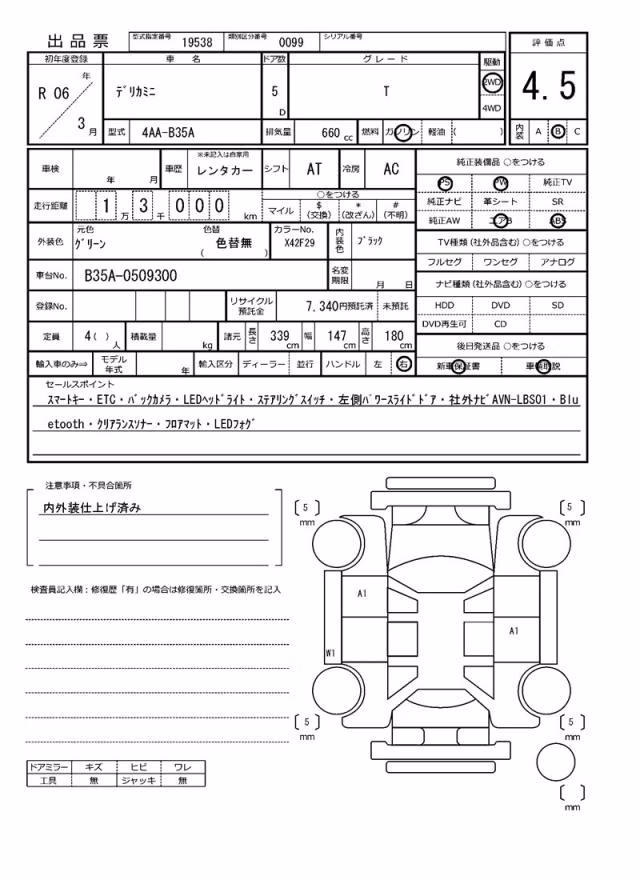 出品票
型式指定番号 19538 類別区分番号 0099 シリアル番号
初年度登録 車名 ドア数 グレード 駆動 評価点
R 06 年 3 月 デリカミニ 5 D T 2WD 4WD 4.5
型式 4AA-B35A 排気量 660 cc 燃料 ガソリン 軽油 ( ) 内装 A B C
車検 年 月 車歴 ※未記入は自家用 レンタカー シフト AT 冷房 AC
走行距離 1 万 3 千 0 0 0 km ○をつける マイル $ (交換) * (改ざん) # (不明)
外装色 元色 グリーン 色替 色替無 ( ) カラーNo. X42F29 内装色 ブラック
車台No. B35A-0509300 名変期限 月 日
登録No. リサイクル預託金 7,340円預託済 未預託
定員 4( ) 人 積載量 kg 諸元 長さ 339 cm 幅 147 cm 高さ 180 cm
輸入車のみ⇒ モデル年式 年 輸入区分 ディーラー 並行 ハンドル 左 右
純正装備品 ○をつける
PS PW 純正TV
純正ナビ 革シート SR
純正AW エアB ABS
TV種類 (社外品含む) ○をつける
フルセグ ワンセグ アナログ
ナビ種類 (社外品含む) ○をつける
HDD DVD SD
DVD再生可 CD
後日発送品 ○をつける
新車保証書 車輌取説
セールスポイント
スマートキー・ETC・バックカメラ・LEDヘッドライト・ステアリングスイッチ・左側パワースライドドア・社外ナビAVN-LBS01・Blu
etooth・クリアランスソナー・フロアマット・LEDフォグ
注意事項・不具合箇所
内外装仕上げ済み
検査員記入欄：修復歴「有」の場合は修復箇所・交換箇所を記入
5 mm
5 mm
A1
A1
W1
5 mm
5 mm
mm
ドアミラー キズ ヒビ ワレ
工具 無 ジャッキ 無